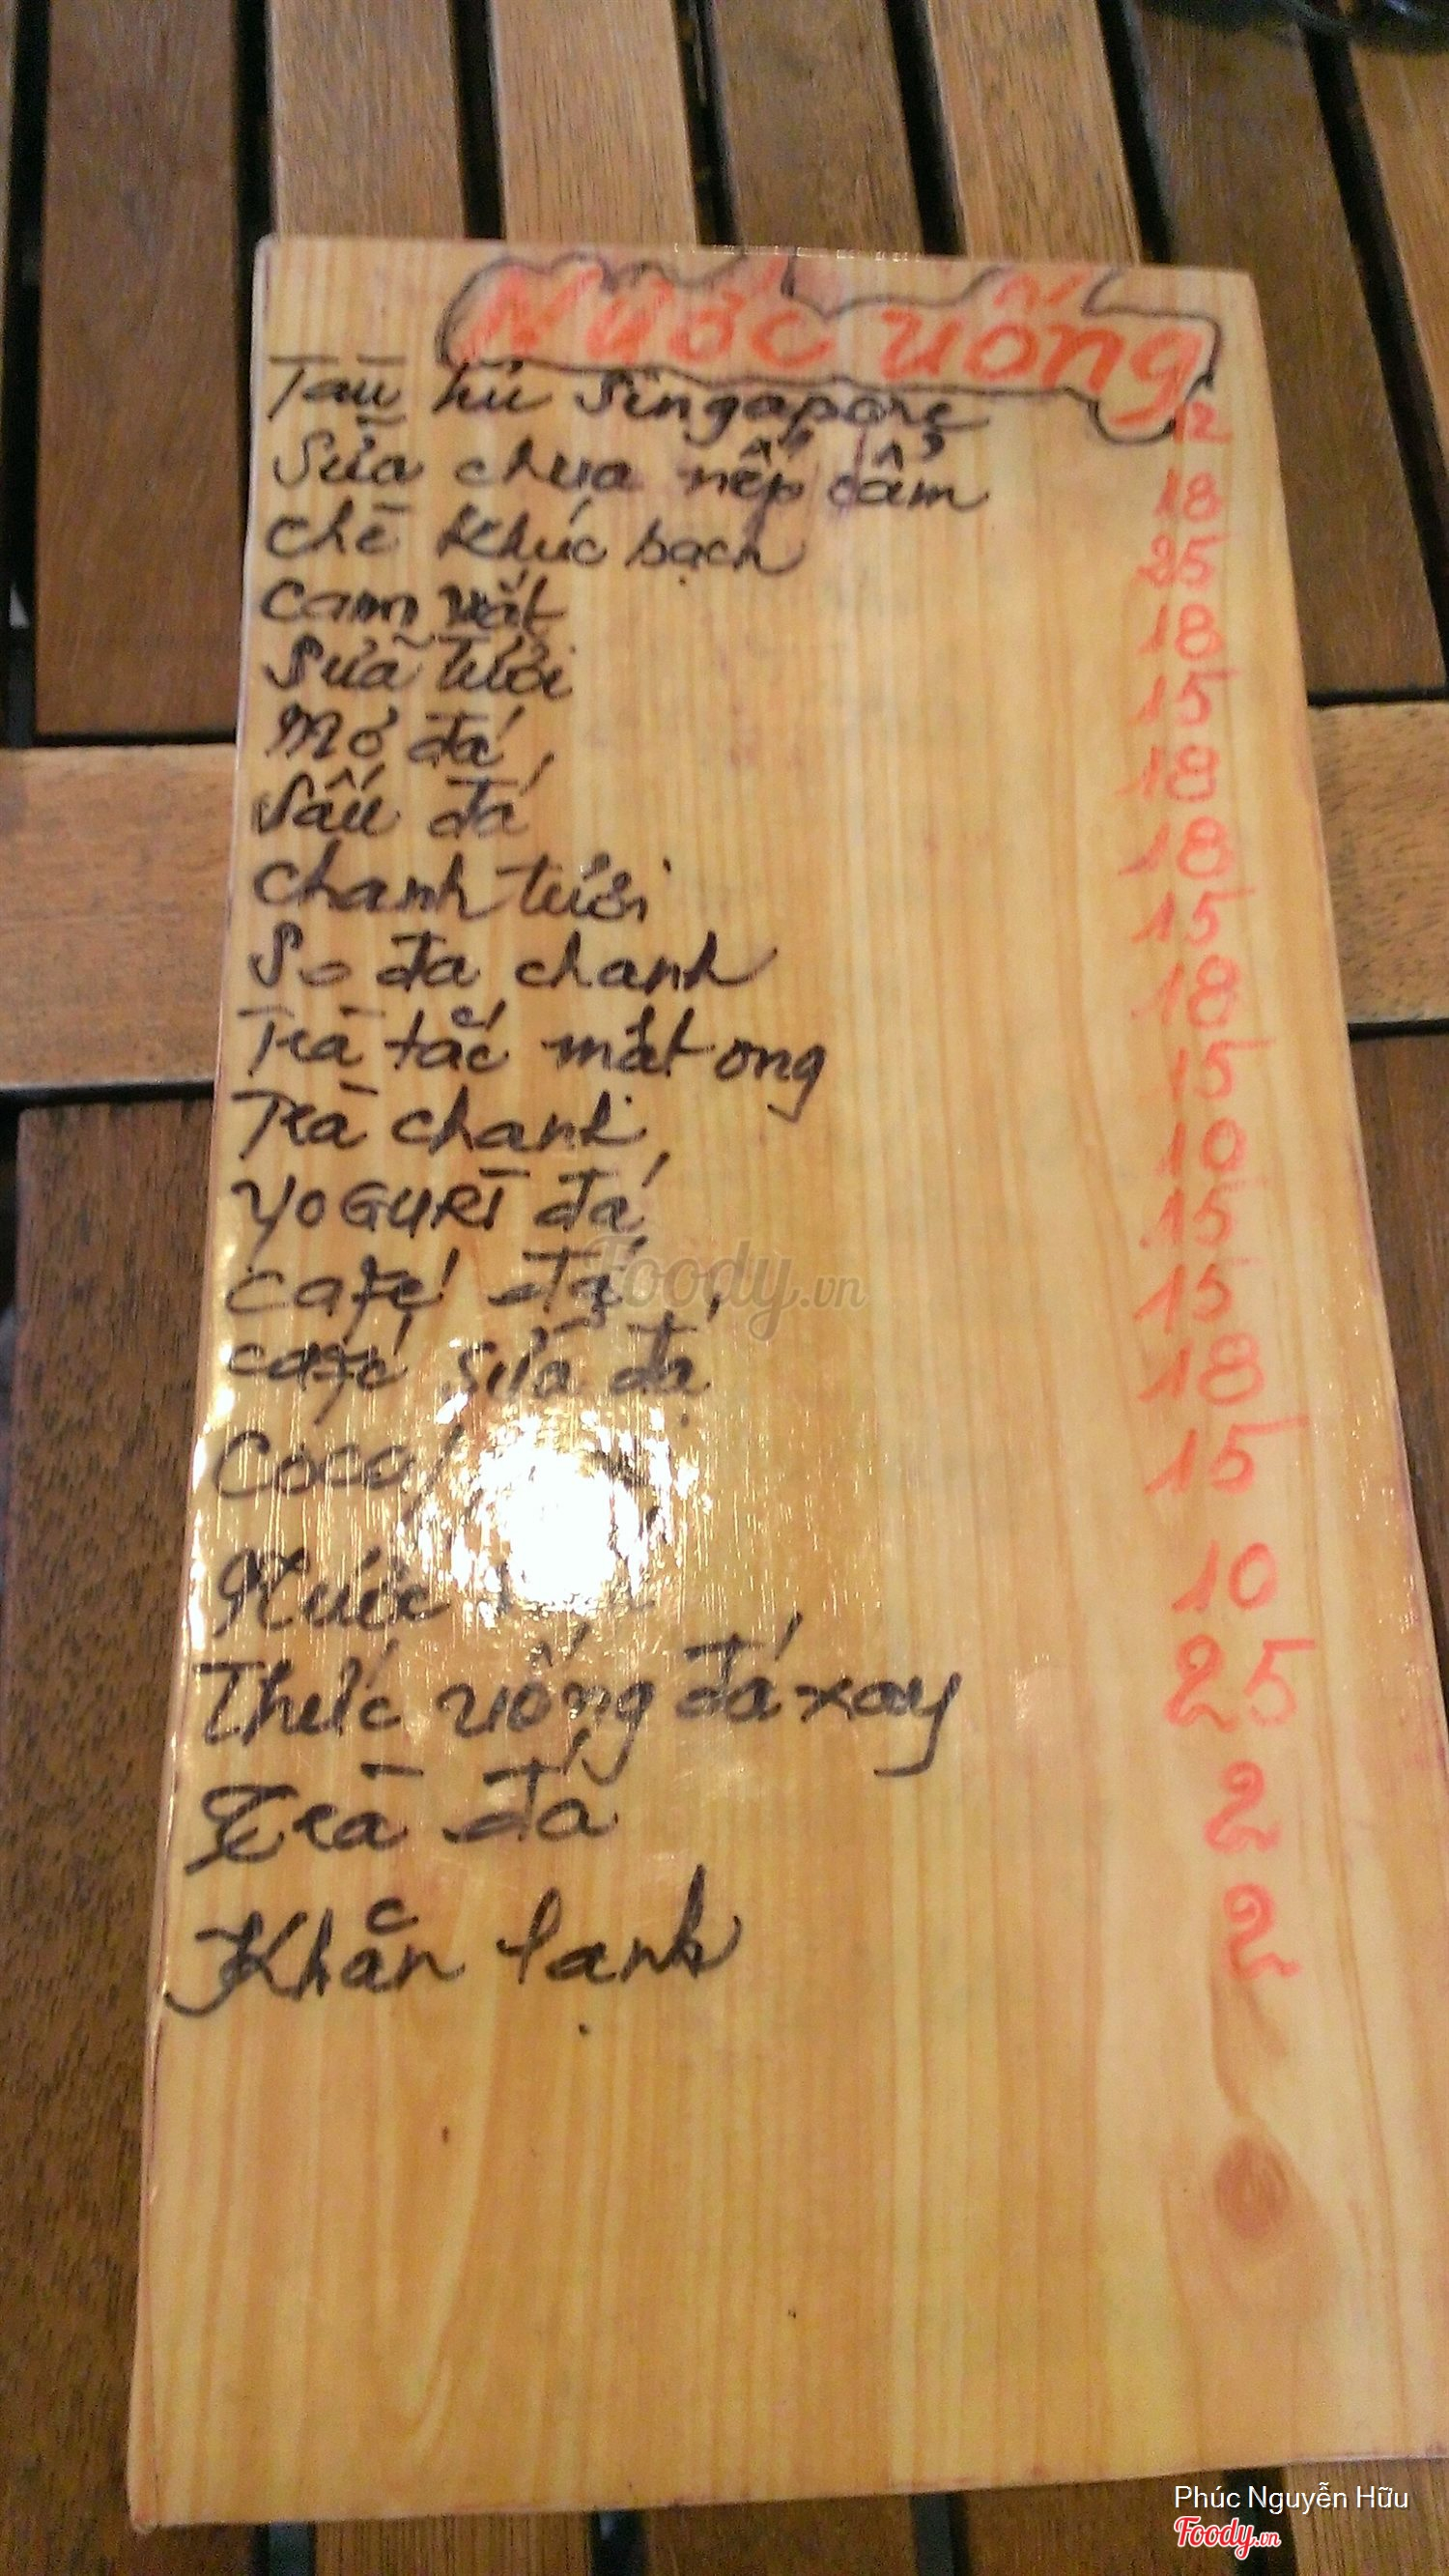 Nước uống
Tàu hủ Singapore 12
Sữa chua nếp cẩm 18
Chè khúc bạch 25
Cam vắt 18
Sữa tươi 15
Mơ đá 18
Sấu đá 18
Chanh tươi 15
So đa chanh 18
Trà tắc mật ong 15
Trà chanh 10
YOGURT đá 15
Café đá 15
Café sữa đá 18
Coca/ 15
Nước 10
Thức uống đá xay 25
Trà đá 2
Khăn lạnh 2
Foody.vn
Phúc Nguyễn Hữu
Foody.vn